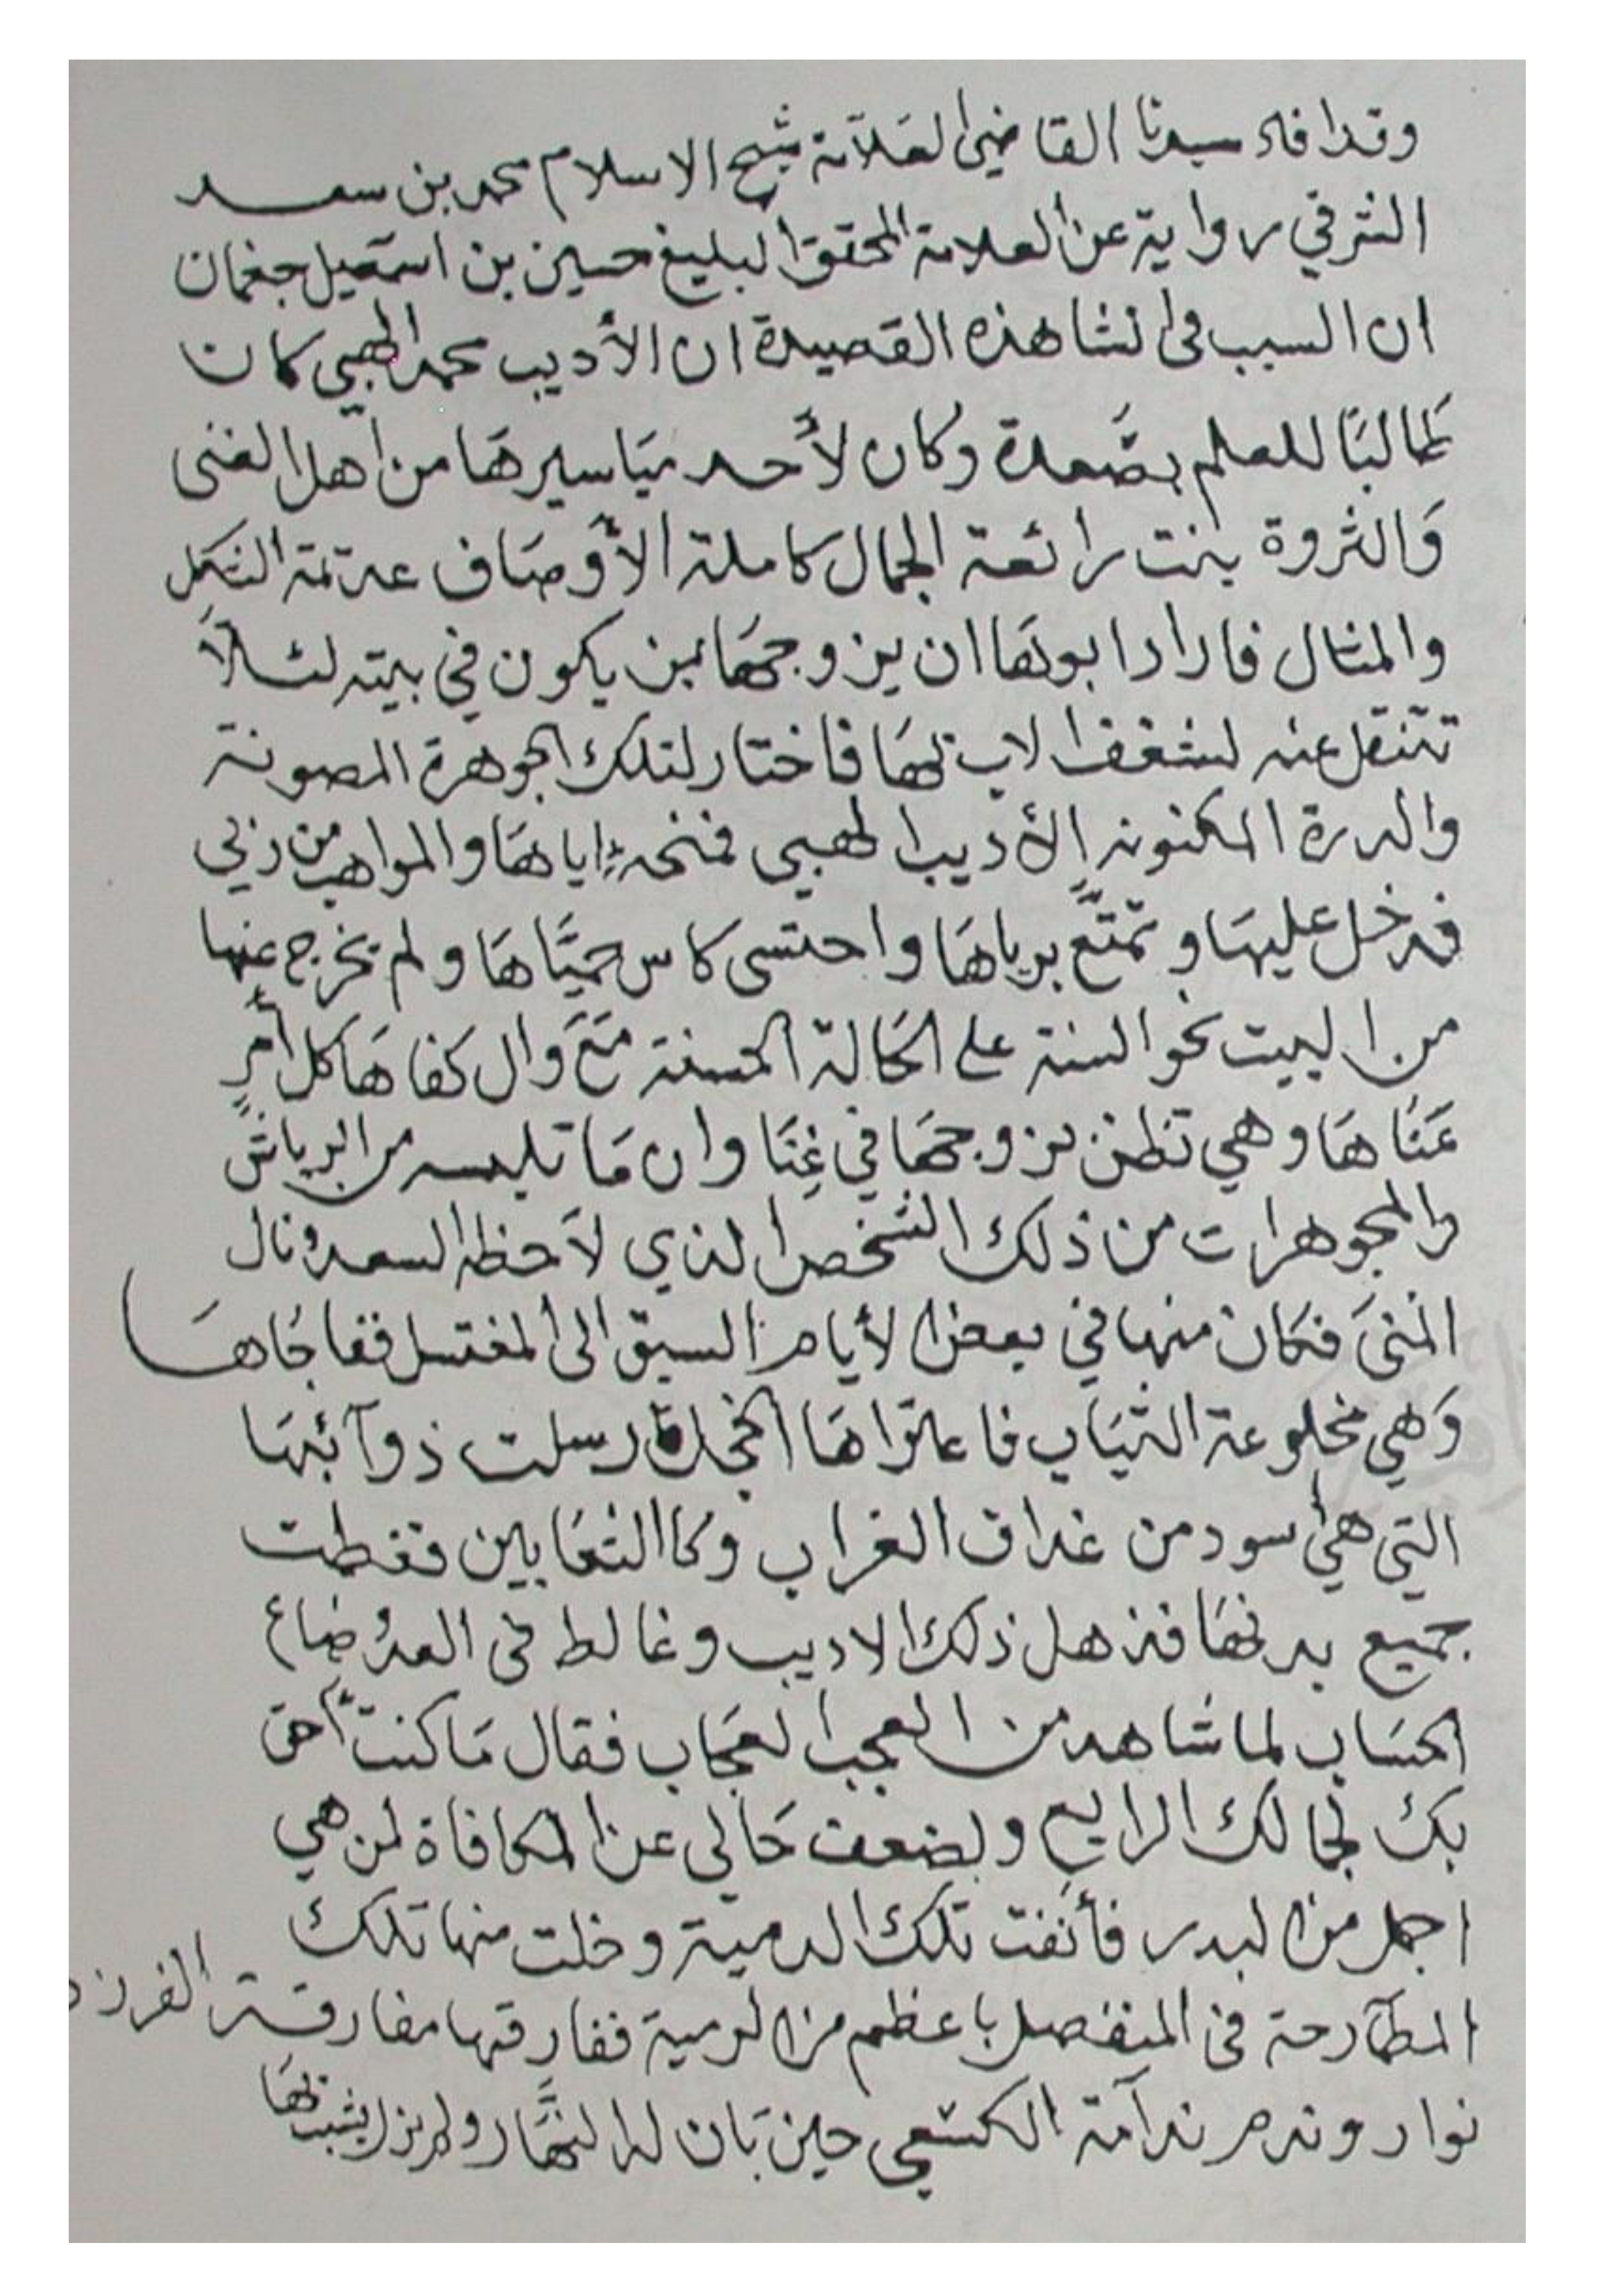 وقد افاد سيدنا القاضي العلامة شيخ الاسلام محمد بن سعد
الشرقي رواية عن العلامة المحقق البليغ حسين بن اسمعيل جغمان
ان السبب في انشا هذه القصيدة ان الأديب محمد الهبي كان
طالبًا للعلم بصَعدة وكان لأحد مَياسيرهَا من اهل الغنى
وَالثروة بنت رائعة الجمال كاملة الأوصَاف عديمة الشكل
والمثال فاراد ابوهَا ان يزوجهَا بمن يكون في بيته لئلاَّ
تنتقل عنه لشغف الاب بهَا فاختار لتلك الجوهرة المصونة
والدرة المكنونه الأديب الهبي فمنحه اياهَا والمواهب من ربي
فدخل عليهَا وتمتَّع برياهَا واحتسى كاس حميَّاهَا ولم يخرج عنها
من البيت نحو السنة على الحَالة الحسنة مَعَ وَال كفاهَا كل أمرٍ
عَنَاهَا وهي تظن بزوجهَا في غِنَا وان مَا تلبسه من الرياش
والمجوهرات من ذلك الشخص الذي لاَحظه السعد ونال
المنىَ فكان منها في بعض الأيام السبق الى المغتسل ففاجَاهَا
وَهي مخلوعة الثيَاب فاعتراهَا الخجل فارسلت ذوآئبهَا
التي هي أسود من غداف الغراب وكالثعَابين فغطت
جميع بدنهَا فذهل ذلك الاديب وغالط في العدِّ ضاع
الحسَاب لما شاهد من العجب العجَاب فقال مَا كنتُ أحق
بك لجمالك الرايع ولضعف حَالى عن المكافاة لمن هي
اجمل من البدر فأنفت تلك الدمية وخلت منها تلك
المطَارحة في المنفصل باعظم من الرمية ففارقها مفارقة الفرزد
نوار وندم ندآمة الكسعي حين بَان له النهَّار ولم يزل يشبب بهَا